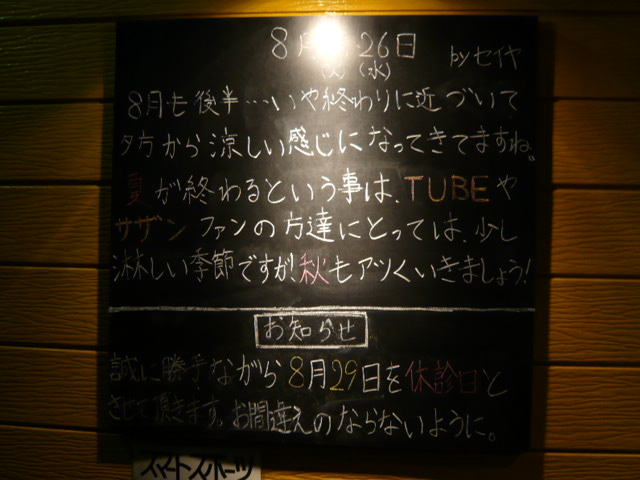 8月 26日 byセイヤ
(水)
8月も後半…いや終わりに近づいて
夕方から涼しい感じになってきてますね。
夏が終わるという事は、TUBEや
サザンファンの方達にとっては、少し
淋しい季節ですが!秋もアツくいきましょう!
お知らせ
誠に勝手ながら8月29日を休診日と
させて頂きます。お間違えのならないように。
スマートスポーツ